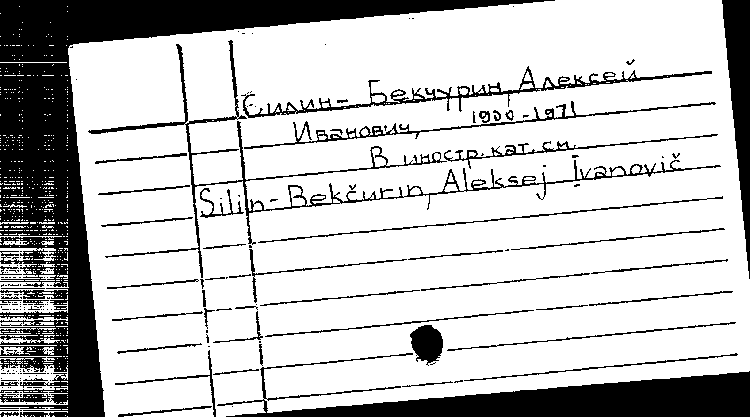 Силин- Бекчурин, Алексей
Иванович, 1900-1971
В иностр. кат. см.
Silin-Bekčurin, Aleksej Ivanovič